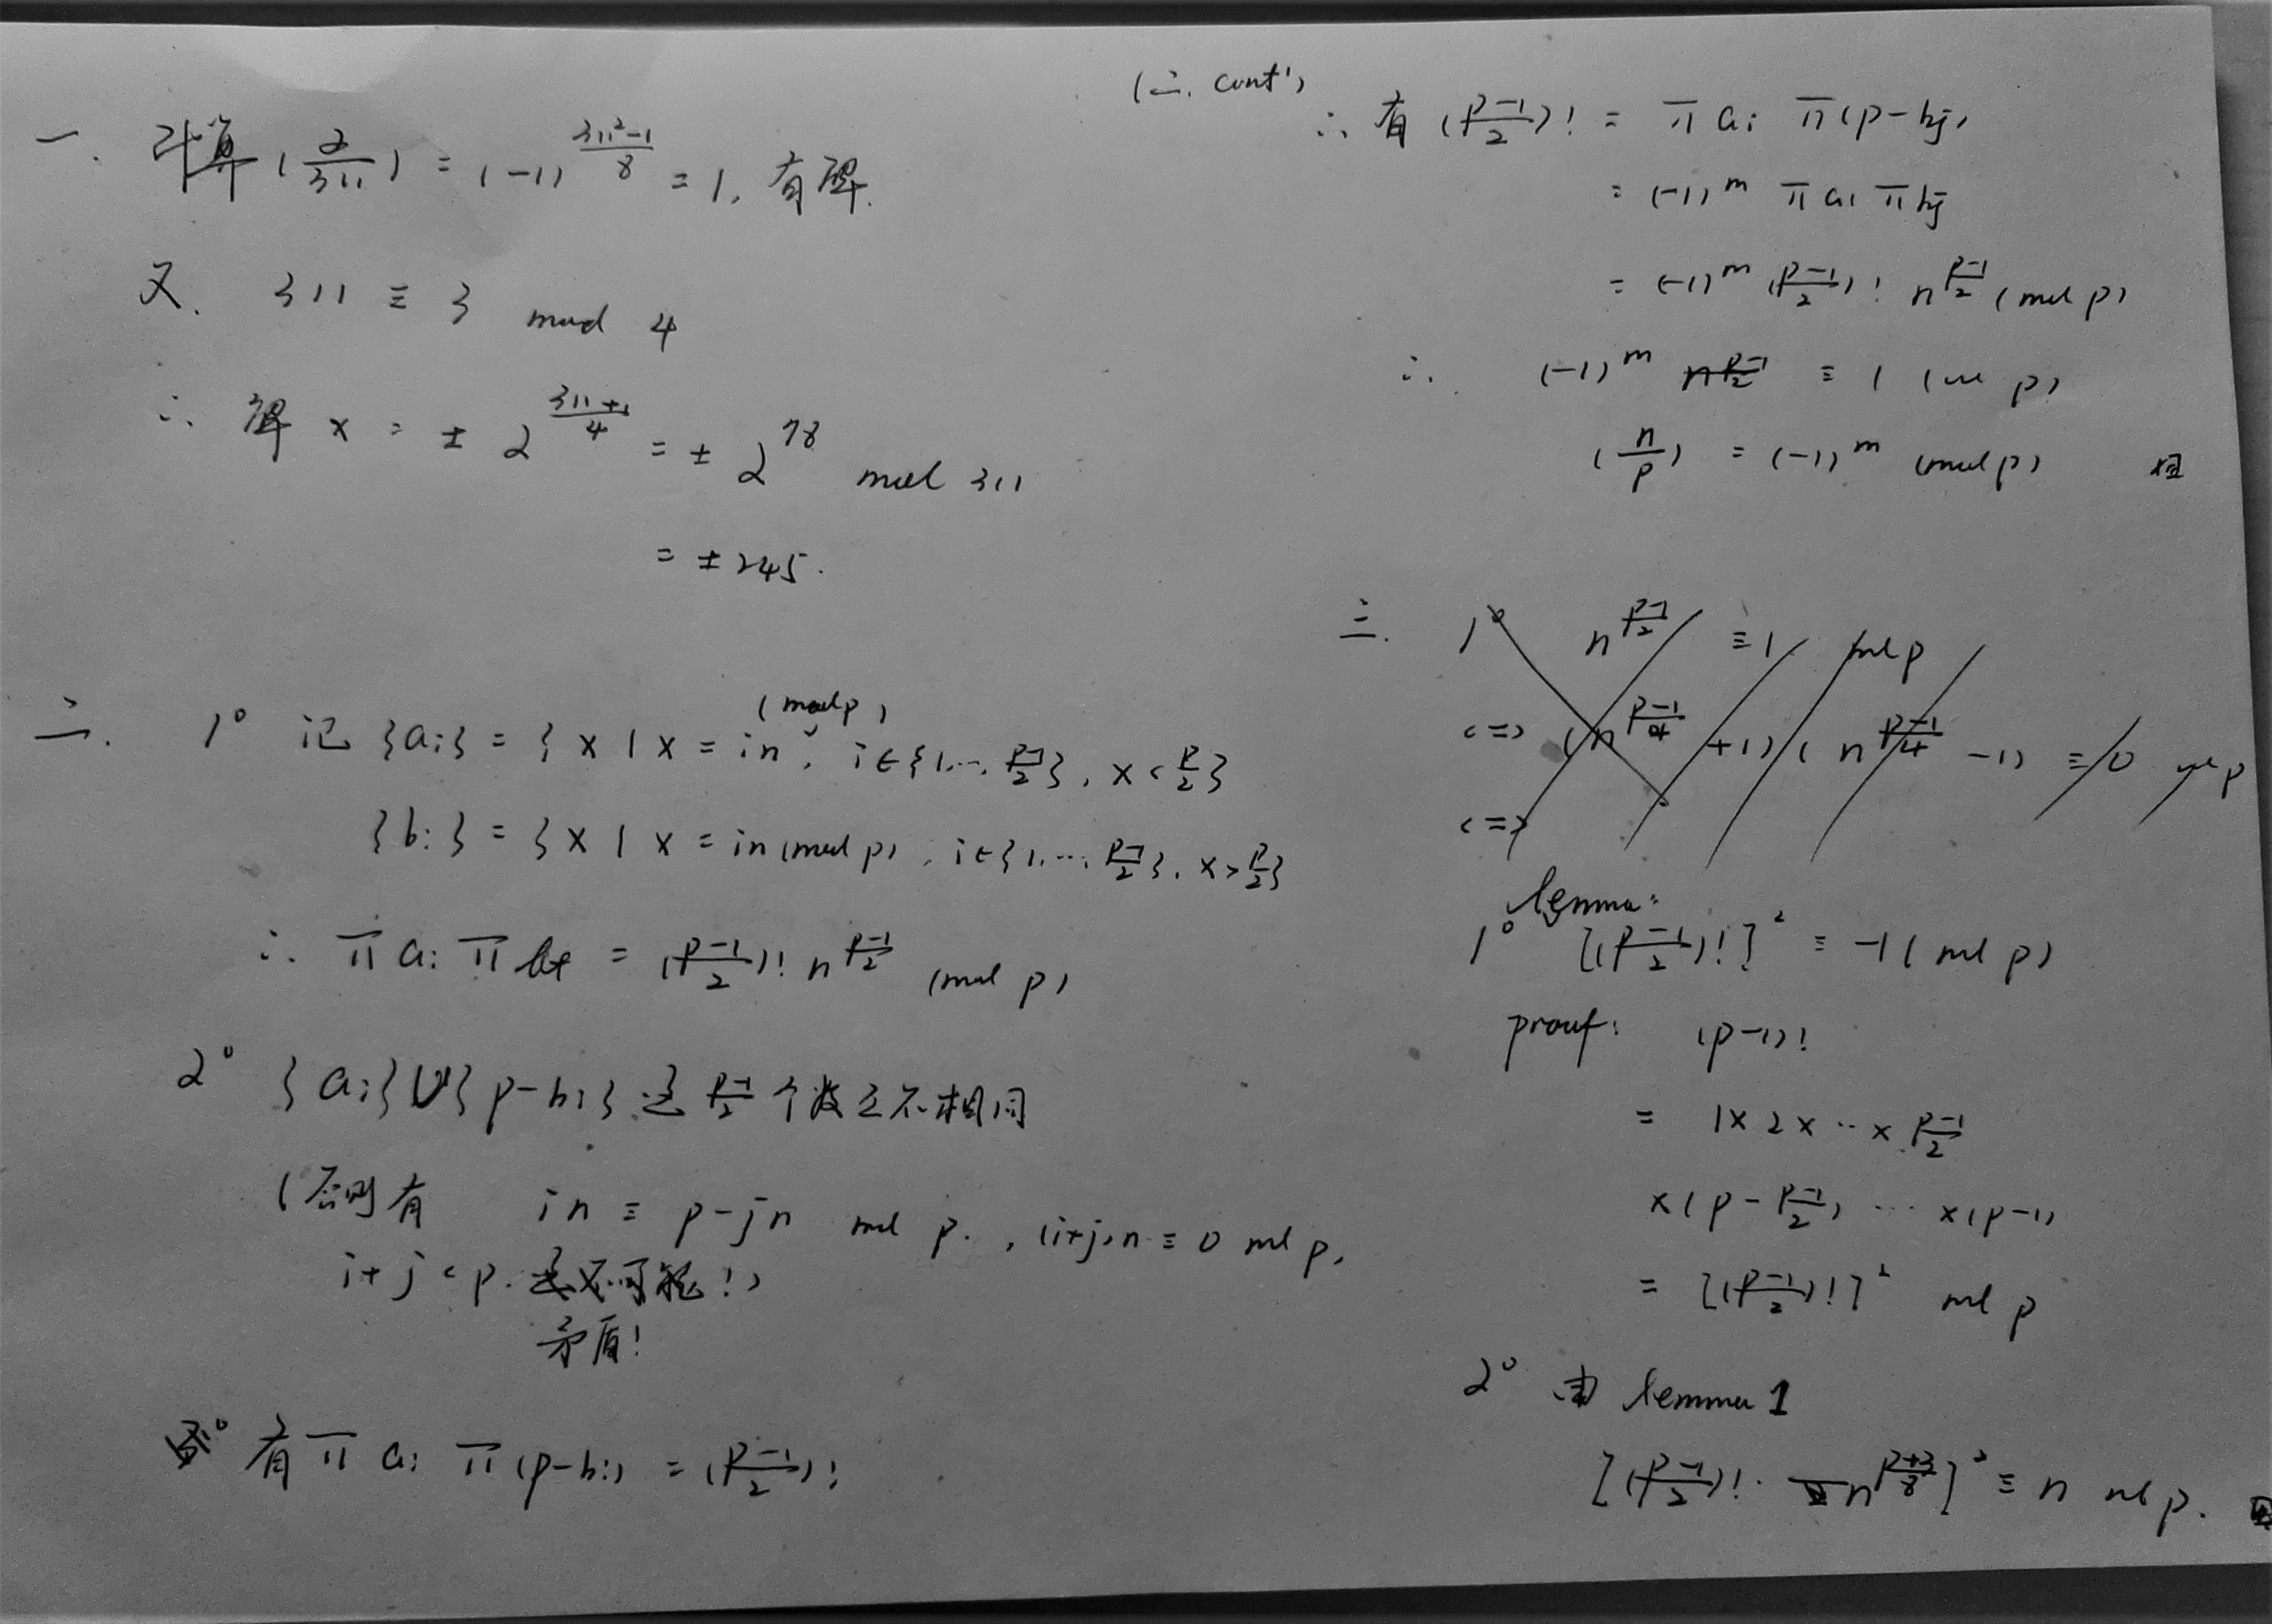 一. 计算 (2/311) = (-1)^{(311²-1)/8} = 1, 有解.
又. 311 ≡ 3 mod 4
∴ 解 x = ± 2^{(311+1)/4} = ± 2^{78} mod 311
= ± 245.
二. 1° 记 {ai} = {x | x = in (mod p), i∈{1,…, (p-1)/2}, x < p/2}
{bi} = {x | x = in (mod p), i∈{1,…, (p-1)/2}, x > p/2}
∴ π ai π = ((p-1)/2)! n^{(p-1)/2} (mod p)
2° {ai}∪{p-bi} 这 (p-1)/2 个数互不相同
(否则有 in ≡ p-jn mod p. , (i+j)n ≡ 0 mod p,
i+j < p.
矛盾!
有 π ai π(p-bi) = ((p-1)/2)!
(二. cont')
∴ 有 ((p-1)/2)! = π ai π(p-bj)
= (-1)^m π ai π bj
= (-1)^m ((p-1)/2)! n^{(p-1)/2} (mod p)
∴ (-1)^m n^{(p-1)/2} ≡ 1 (mod p)
(n/p) = (-1)^m (mod p)
三. 1° n^{(p-1)/2} ≡ 1 mod p
<=> (n^{(p-1)/4} +1)( n^{(p-1)/4} -1) ≡ 0 mod p
<=>
lemma:
1° [((p-1)/2)!]² ≡ -1 (mod p)
proof: (p-1)!
= 1×2×…× (p-1)/2
×(p - (p-1)/2) … ×(p-1)
= [((p-1)/2)!]² mod p
2° 由 lemma 1
[((p-1)/2)! · n^{(p+3)/8}]² ≡ n mod p.